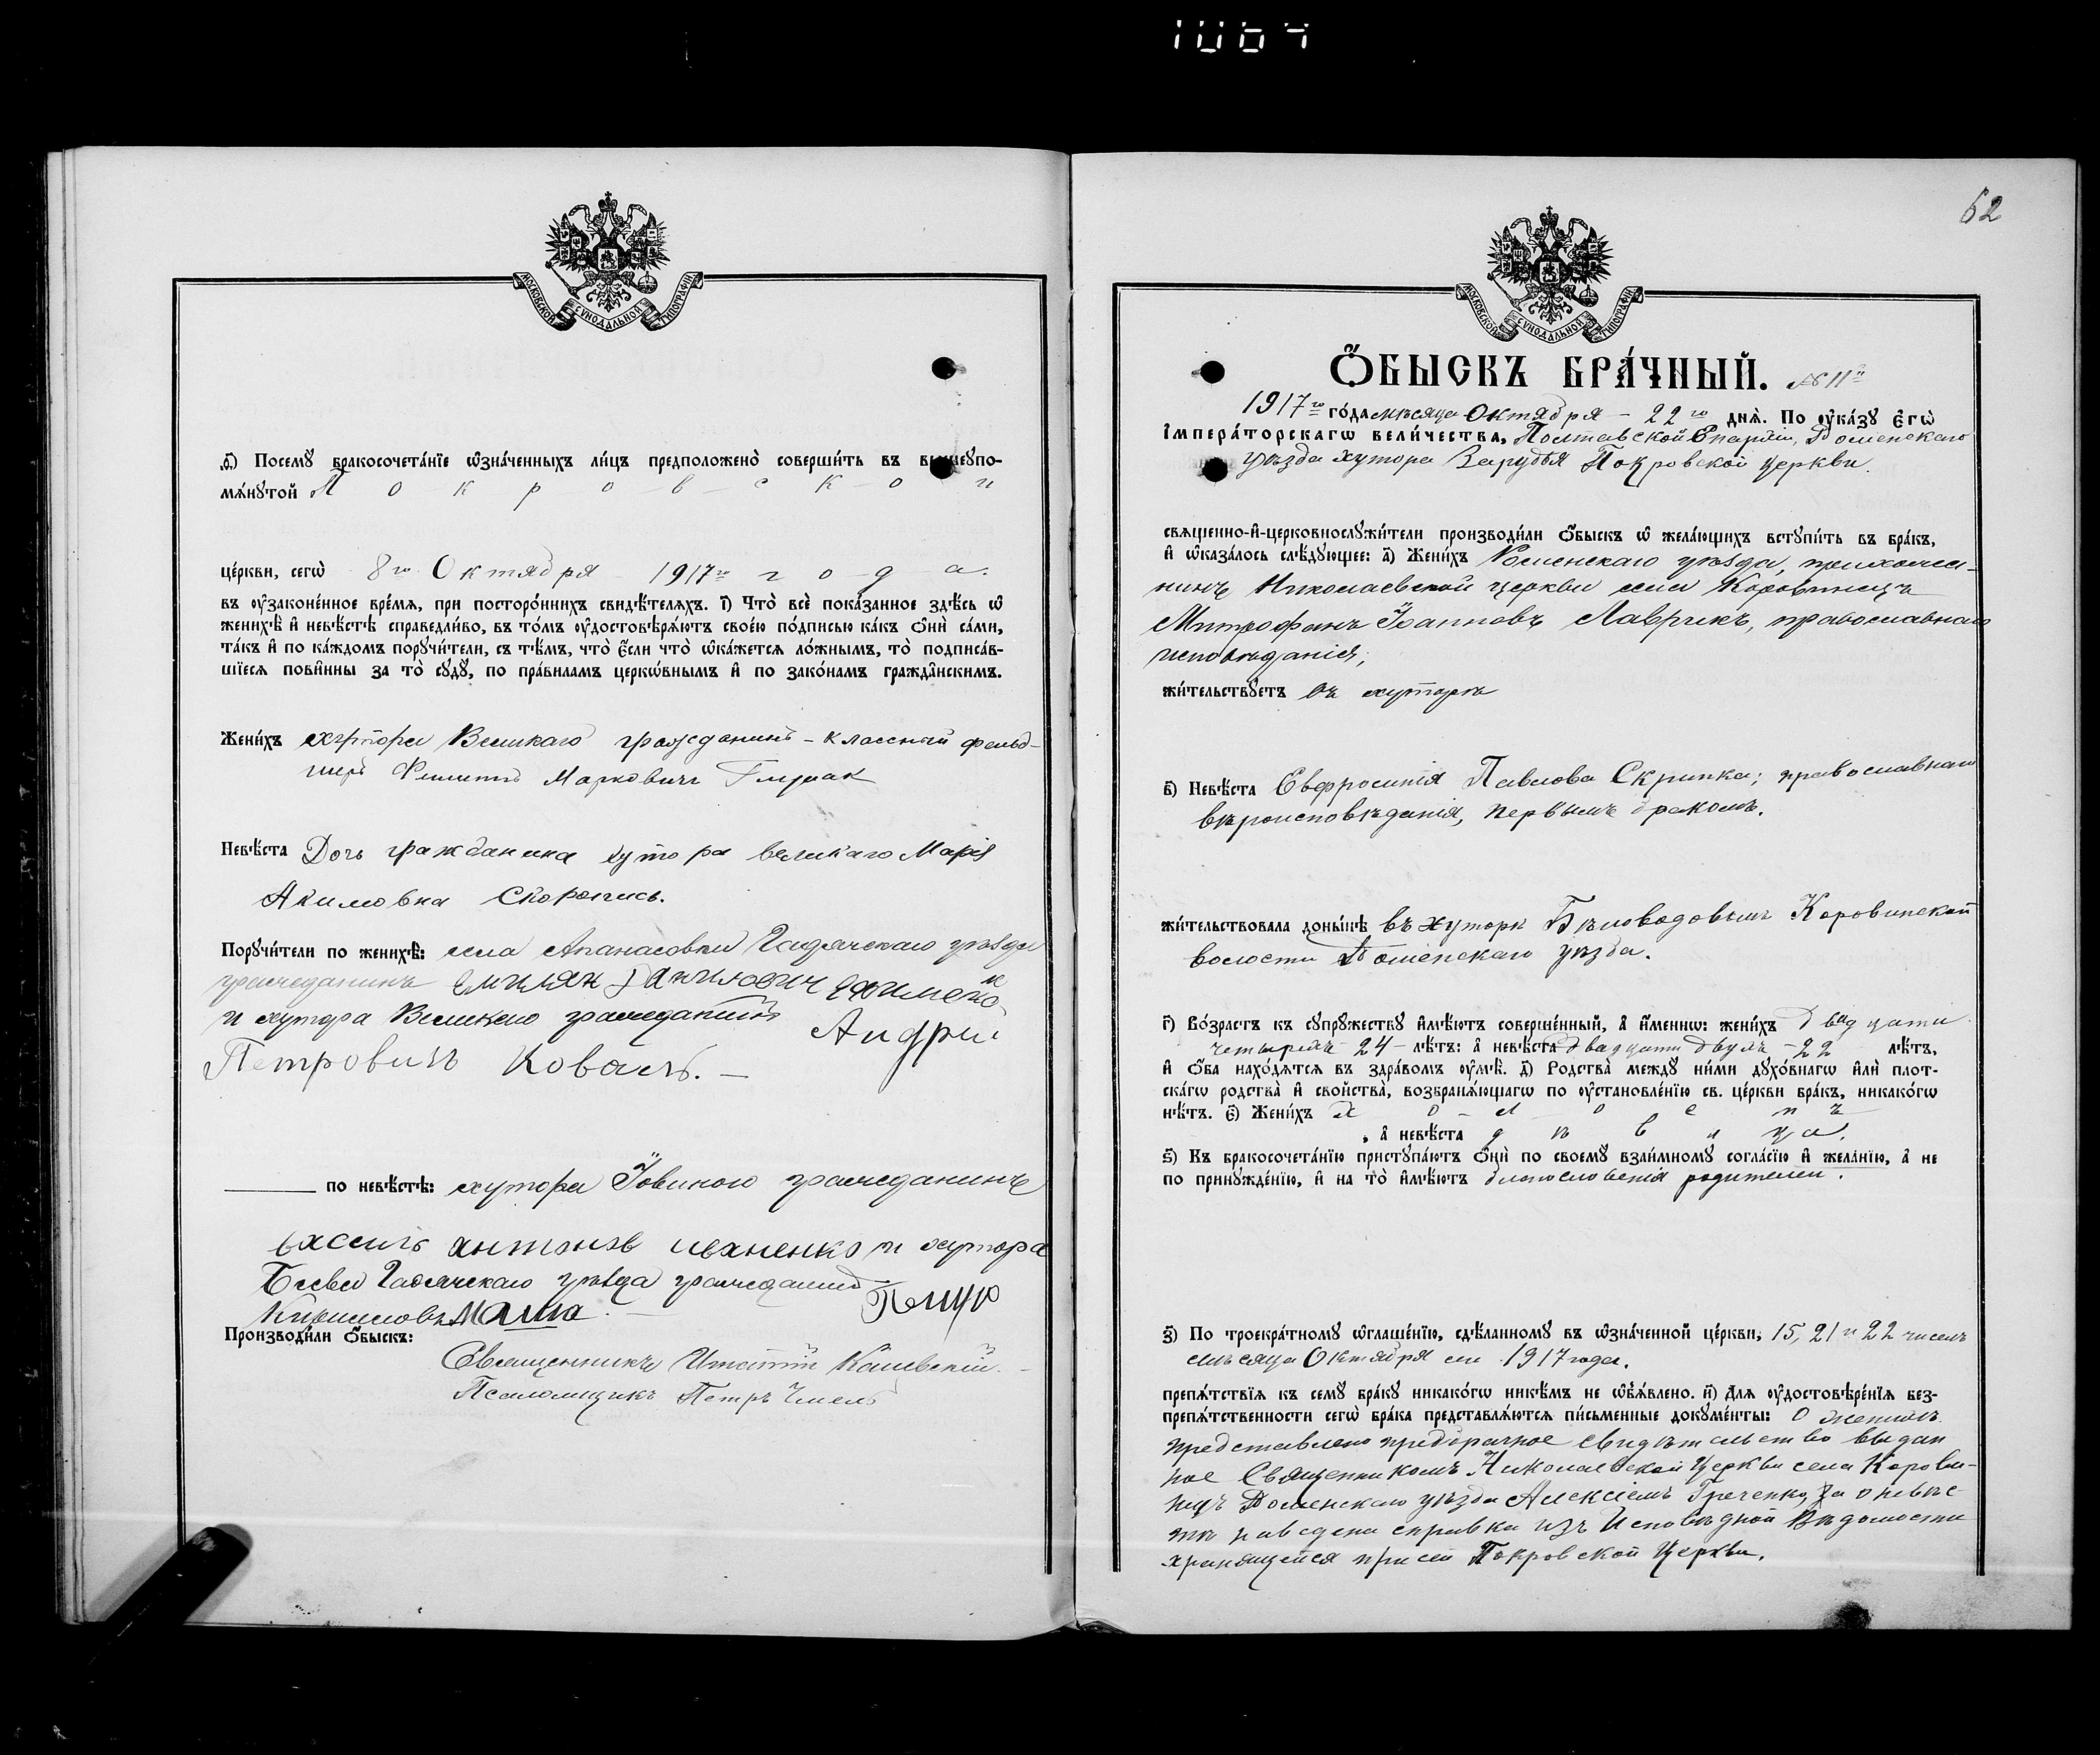 1064
МОСКОВСКОЙ СУНОДАЛЬНОЙ ТИПОГРАФІИ
Посемꙋ бракосочета́нїе ѡ҆зна́ченныхъ ли́цъ предположено̀ соверши́ть въ вышеꙋпо-
мѧ́нꙋтой Покровской
це́ркви, сегѡ̀ 8го Октября 1917го года.
въ ᲂу҆законе́нное вре́мѧ, при посторо́ннихъ свидѣ́телѧхъ. і҃) Что̀ всѐ пока́занное здѣ́сь ѡ҆
женихѣ̀ и҆ невѣ́стѣ справедли́во, въ то́мъ ᲂу҆достовѣрѧ́ютъ свое́ю по́дписью ка́къ ѻ҆нѝ са́ми,
та́къ и҆ по ка́ждомъ порꙋчи́тели, съ тѣ́мъ, что̀ є҆́сли что̀ ѡ҆ка́жетсѧ ло́жнымъ, то̀ подписа́в-
шїесѧ пови́нны за то̀ сꙋдꙋ̀, по пра́виламъ церкѡ́внымъ и҆ по зако́намъ гражда́нскимъ.
Жени́хъ хутора Великаго гражданинъ - классный фельд-
шеръ Филиппъ Марковичъ
Невѣ́ста Дочь гражданина хутора великаго Марія
Акимовна Скоропись.
Порꙋчи́тели по женихѣ̀: села Апанасовки Гадячскаго уѣзда
гражданинъ Емильян Данилович
и хутора Великаго гражданинъ Андрей
Петровичъ Коваль. —
по невѣ́стѣ: хутора гражданинъ
василь антонов иваненко и хутора
Гадячскаго уѣзда гражданинъ
Кирилловъ
Производи́ли ѻ҆́быскъ:
Священникъ
Псаломщикъ Петръ
62
МОСКОВСКОЙ СУНОДАЛЬНОЙ ТИПОГРАФІИ
Ѻ҆́БЫСКЪ БРА́ЧНЫЙ. № 11й
1917го го́да мѣсяца Октября - 22го днѧ̀. По ᲂу҆ка́зꙋ є҆гѡ̀
і҆мпера́торскагѡ вели́чества, Полтавской Епархіи, Роменскаго
уѣзда хутора Зарудья Покровской церкви.
свѧщенно-и҆-церковнослꙋжи́тели производи́ли ѻ҆́быскъ ѡ҆ жела́ющихъ встꙋпи́ть въ бра́къ,
и҆ ѡ҆каза́лось слѣ́дꙋющее: а҃) Жени́хъ Роменскаго уѣзда, прихожа-
нинъ Николаевской церкви села Коровинецъ
Митрофанъ Іоанновъ Лаврикъ, православнаго
исповѣданія,
жи́тельствꙋетъ въ хуторѣ
в҃) Невѣ́ста Евфросинія Павлова Скрипка; православнаго
вѣроисповѣданія, первымъ бракомъ.
жи́тельствовала доны́нѣ въ хуторѣ Бѣловодовымъ Коровинской
волости Роменскаго уѣзда.
г҃) Во́зрастъ къ сꙋпрꙋ́жествꙋ и҆мѣ́ютъ соверше́нный, а҆ и҆́меннѡ: жени́хъ двадцати
четырехъ 24 лѣ́тъ: а҆ невѣ́ста двадцати двухъ - 22 лѣ́тъ,
и҆ ѻ҆́ба нахо́дѧтсѧ въ здра́вомъ ᲂу҆мѣ̀. д҃) Родства̀ междꙋ ни́ми дꙋхо́внагѡ и҆лѝ плот-
ска́гѡ родства̀ и҆ свойства̀, возбранѧ́ющагѡ по ᲂу҆становле́нїю св. це́ркви бра́къ, никако́гѡ
нѣ́тъ. є҃) Жени́хъ холостъ
, а҆ невѣ́ста дѣвица.
ѕ҃) Къ бракосочета́нїю пристꙋпа́ютъ ѻ҆нѝ по своемꙋ̀ взаи́мномꙋ согла́сїю и҆ жела́нїю, а҆ не
по принꙋжде́нїю, и҆ на то̀ и҆мѣ́ютъ благословенія родителей.
з҃) По троекра́тномꙋ ѡ҆глаше́нїю, сдѣ́ланномꙋ въ ѡ҆зна́ченной це́ркви, 15, 21 и 22 числъ
мѣсяца Октября 1917 года.
препѧ́тствїѧ къ семꙋ̀ бра́кꙋ никако́гѡ никѣ́мъ не ѡ҆б̾ѧ́влено. и҃) Длѧ ᲂу҆достовѣре́нїѧ без-
препѧ́тственности сегѡ̀ бра́ка представлѧ́ютсѧ пи́сьменные докꙋме́нты: О женихѣ
представлено предбрачное свидѣтельство выдан
ное Священникомъ Николаевской Церкви села Корови-
нецъ Роменскаго уѣзда Алексіемъ Греченко, а о невѣс
тѣ наведена справка изъ Исповѣдной Вѣдомости
хранящейся при сей Покровской Церкви.